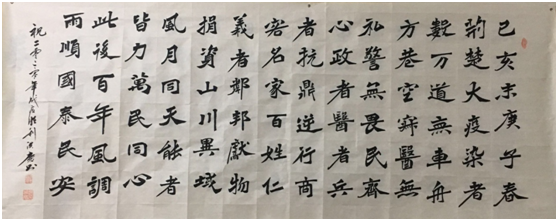 己亥末庚子春
荆楚大疫染者
數万道無車舟
方巷空寂醫無
私警無畏民齊
心政者醫者兵
者抗鼎逆行商
客名家百姓仁
義者鄰邦獻物
捐資山川異域
風月同天能者
皆力萬民同心
此後百年風調
雨順國泰民安
祝二零二零年战疫胜利